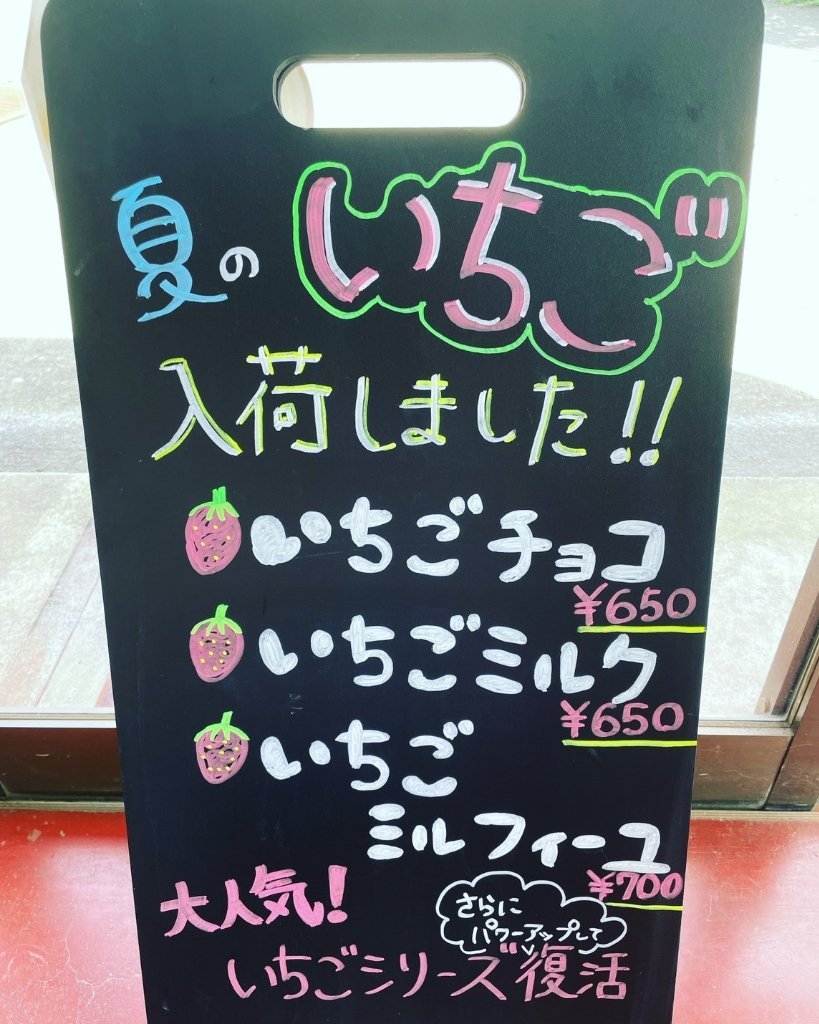 夏のいちご
入荷しました!!
いちごチョコ
¥650
いちごミルク
¥650
いちご
ミルフィーユ
¥700
大人気!
さらに
パワーアップして
いちごシリーズ復活